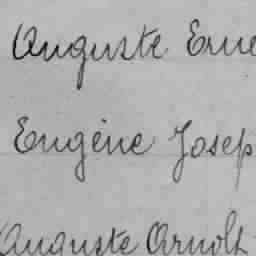 Auguste Erne
Eugène Josep
Auguste Arnolt